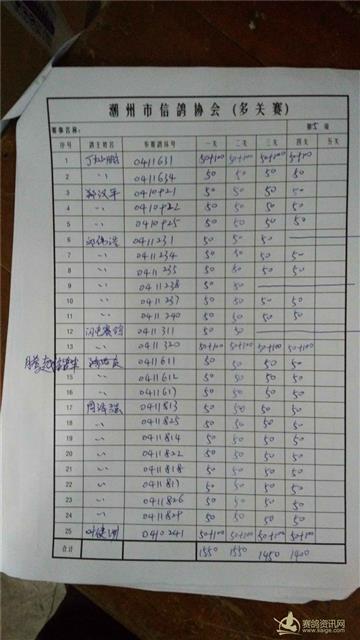 潮州市信鸽协会(多关赛)
赛事名称: 第5项
序号 鸽主姓名 参赛鸽环号 一关 二关 三关 四关 五关
1 0411631 50+100 50+100 50+100 50+100
2 〃 0411634 50 50 50 50
3 郑汉平 0410921 50 50 50 50
4 〃 0410922 50 50 50 50
5 〃 0410925 50 50 50 50
6 0411231 50 50 50
7 〃 0411234 50 50 50 50
8 〃 0411235 50 50 50 50
9 〃 0411238 50 50
10 〃 0411237 50 50 50 50
11 〃 0411240 50 50 50 50
12 闪电赛鸽 0411311 50 50
13 〃 0411320 50+100 50+100 50+100 50+100
0411611 50 50 50 50
15 〃 0411612 50 50 50 50
16 〃 0411617 50 50 50 50
17 0411813 50 50 50 50
18 〃 0411825 50 50 50 50
19 〃 0411814 50 50 50 50
20 〃 0411822 50 50 50 50
21 〃 0411818 50 50 50 50
22 〃 50 50 50 50
23 〃 0411826 50 50 50 50
24 〃 50 50 50 50
25 0410241 50+100 50+100 50+100 50+100
合计 1550 1550 1450 1400
赛鸽资讯网
www.saige.com